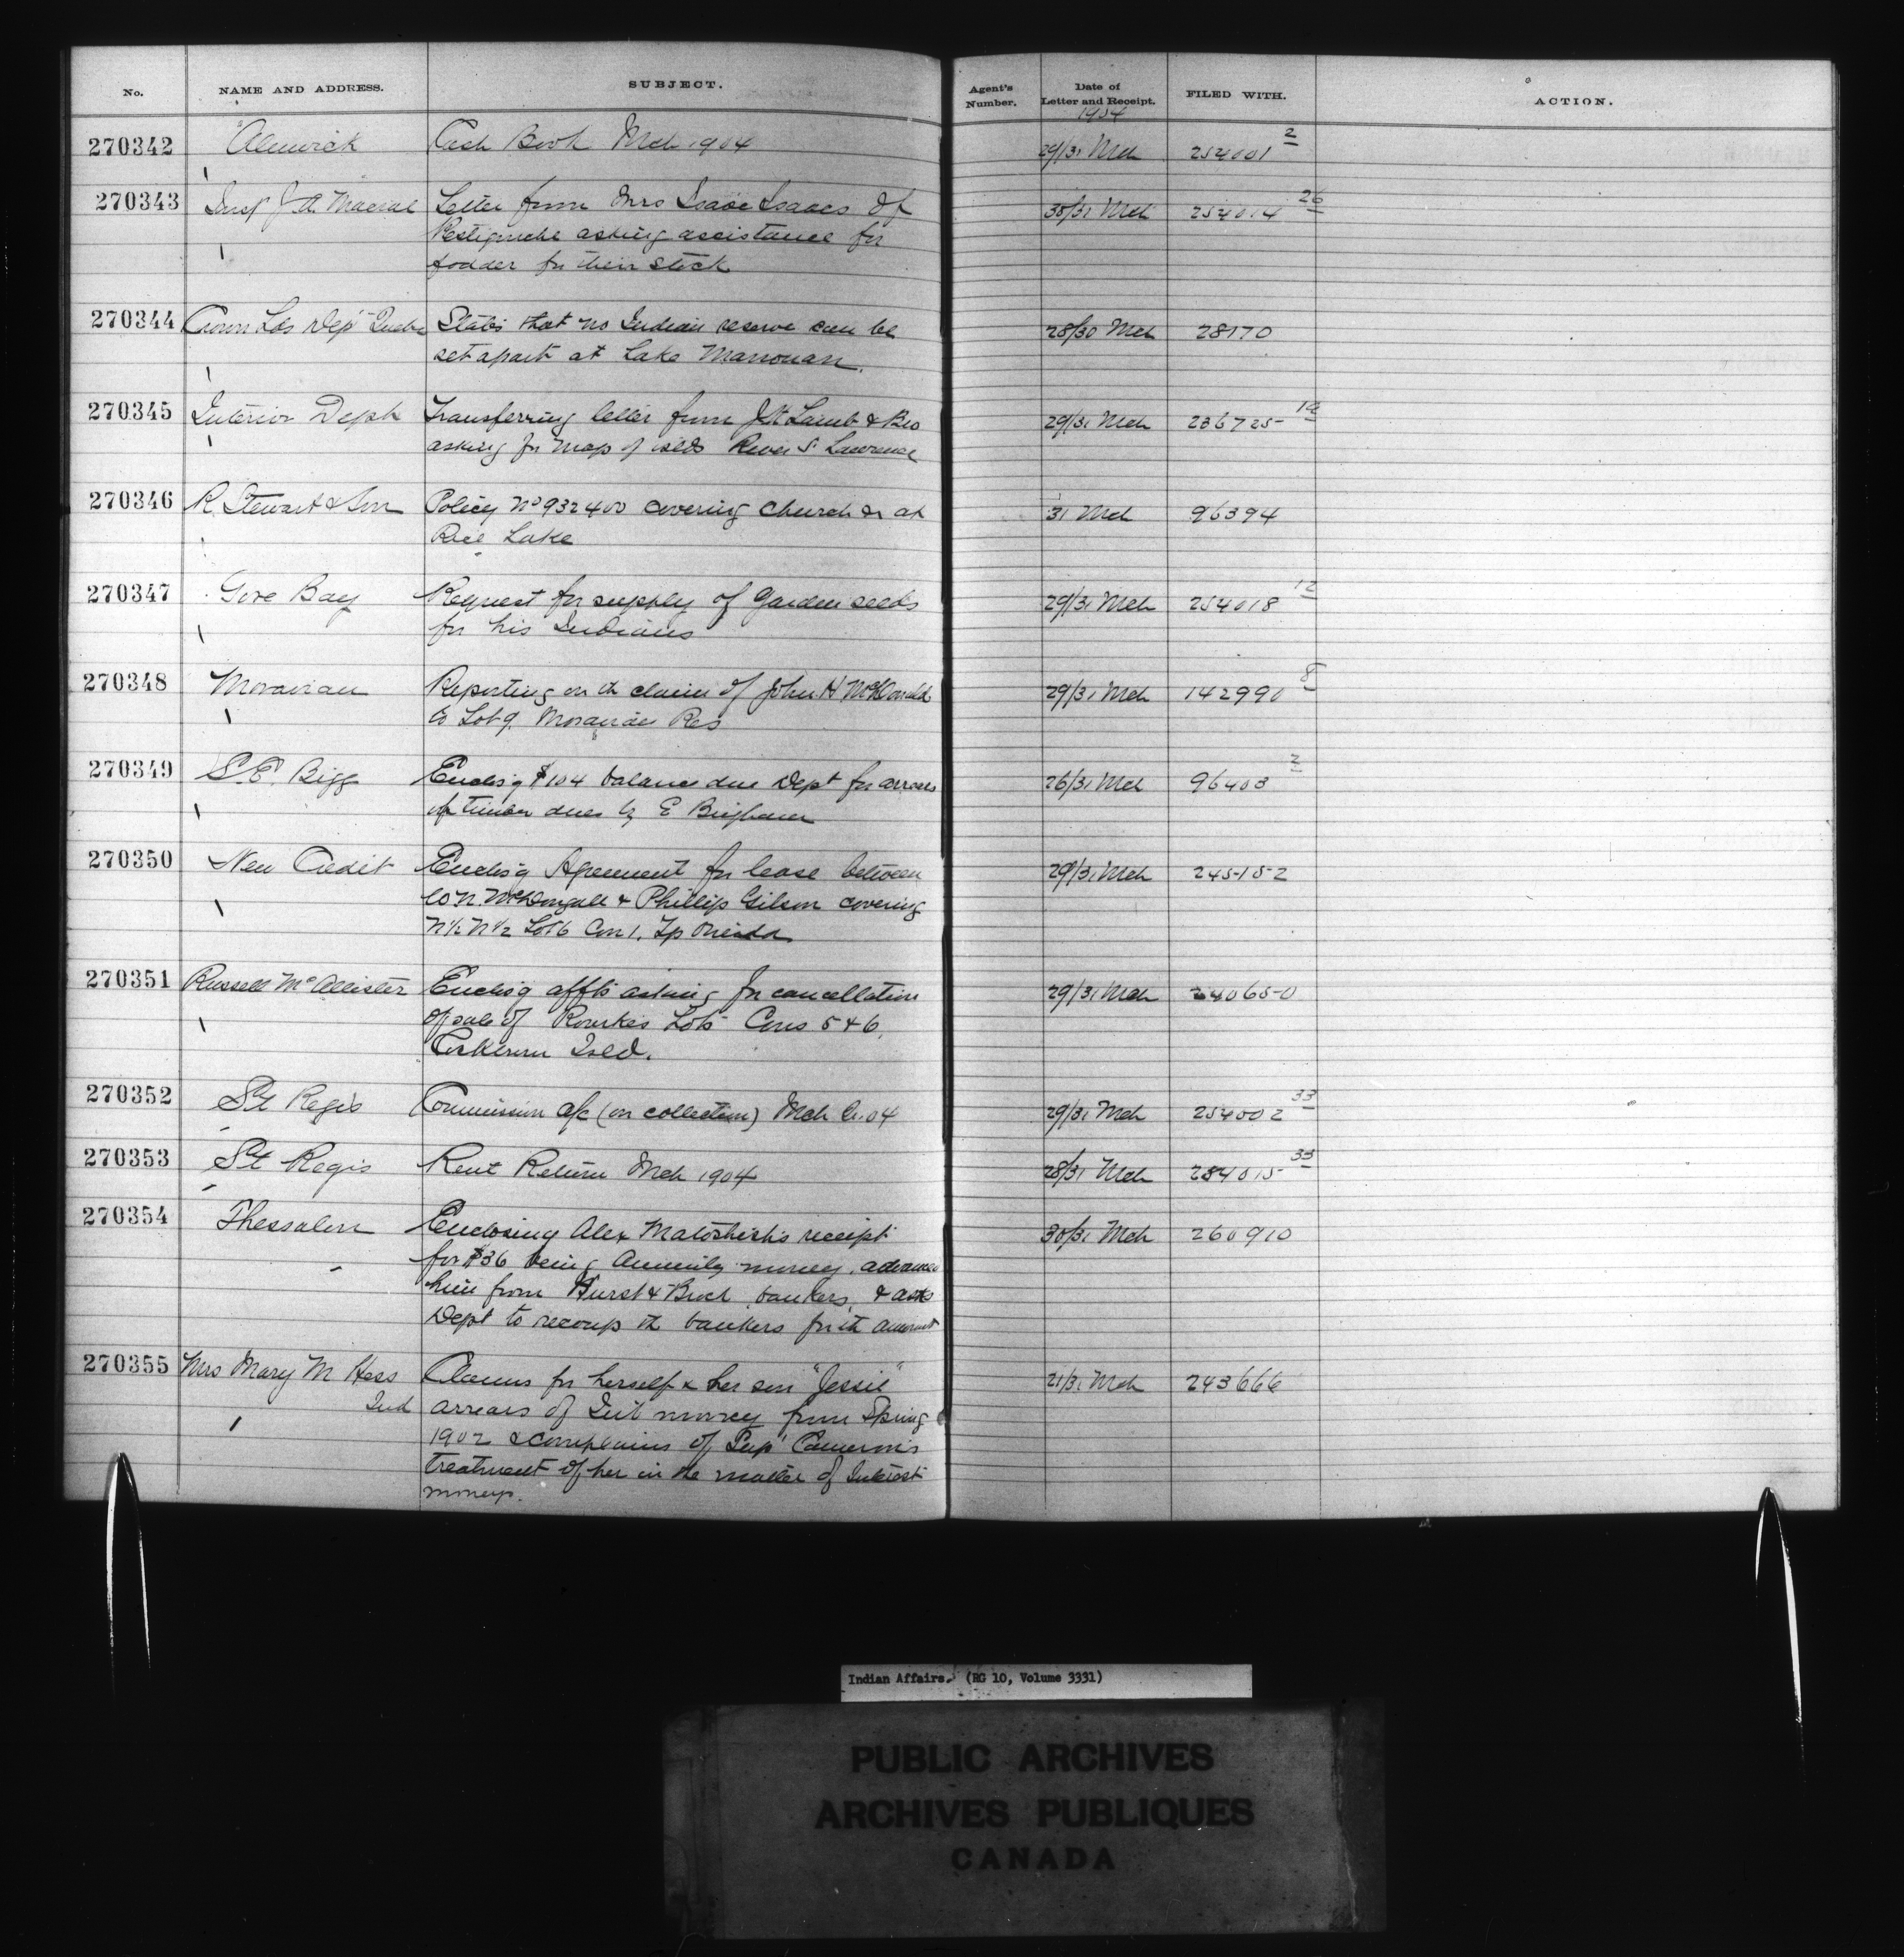 No. NAME AND ADDRESS. SUBJECT. Agent's Number. Date of Letter and Receipt. FILED WITH. ACTION.
1904
270342 Alnwick Cash Book Mch 1904 29/31 Mch 254001 2
270343 Insp J.A. Macrae Letter from Mrs Isaac Isaacs of 30/31 Mch 254014 26
Restigouche asking assistance for
fodder for their stock
270344 Crown Lds Dept Quebec States that no Indian reserve can be 28/30 Mch 28170
set apart at Lake Manouan.
270345 Interior Dept Transferring letter from Lamb & Bro 29/31 Mch 236725 19
asking for map of islds River St Lawrence
270346 R. Stewart & Son Policy No 932400 covering church &c at 31 Mch 96394
Rice Lake
270347 Gore Bay Request for supply of garden seeds 29/31 Mch 254018 12
for his Indians
270348 Moravian Reporting on th claim of John H McDonald 29/31 Mch 142990 8
to Lot 9. Moravian Res
270349 S.E. Bigg Enclos'g $104 balance due Dept for arrears 26/31 Mch 96403 2
of timber dues by E Brigham
270350 New Credit Enclos'g Agreement for lease between 29/31 Mch 245152
McDougall & Phillip Gilson covering
N½ N½ Lot 6 Con 1. Tp Oneida
270351 Russell McAllister Enclos'g affts asking for cancellation 29/31 Mch 240650
of sale of Rourke's Lots Cons 5 & 6,
Cockburn Isld.
270352 St Regis Commission a/c (on collection) Mch 04 29/31 Mch 254002 33
270353 St Regis Rent Return Mch 1904 28/31 Mch 254015 33
270354 Thessalon Enclosing Alex receipt 30/31 Mch 260910
for $36 being Annuity money, advanced
him from Hurst & bankers, & asks
Dept to recoup th bankers for th amount
270355 Mrs Mary M Hess Claims for herself & her son "Jessie" 21/31 Mch 243666
Ind arrears of Int money from Spring
1902 & complains of Supt Cameron's
treatment of her in the matter of Interest
moneys.
Indian Affairs. (RG 10, Volume 3331)
PUBLIC ARCHIVES
ARCHIVES PUBLIQUES
CANADA